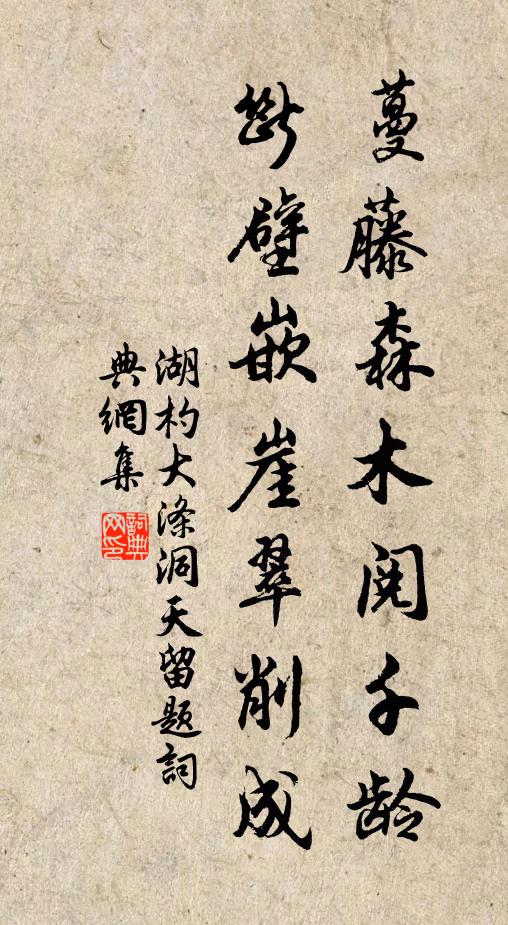 蔓藤森木阅千龄
斷壁嵌崖翠削成
湖杓大滌洞天留题詞
典網集
詞典
网印